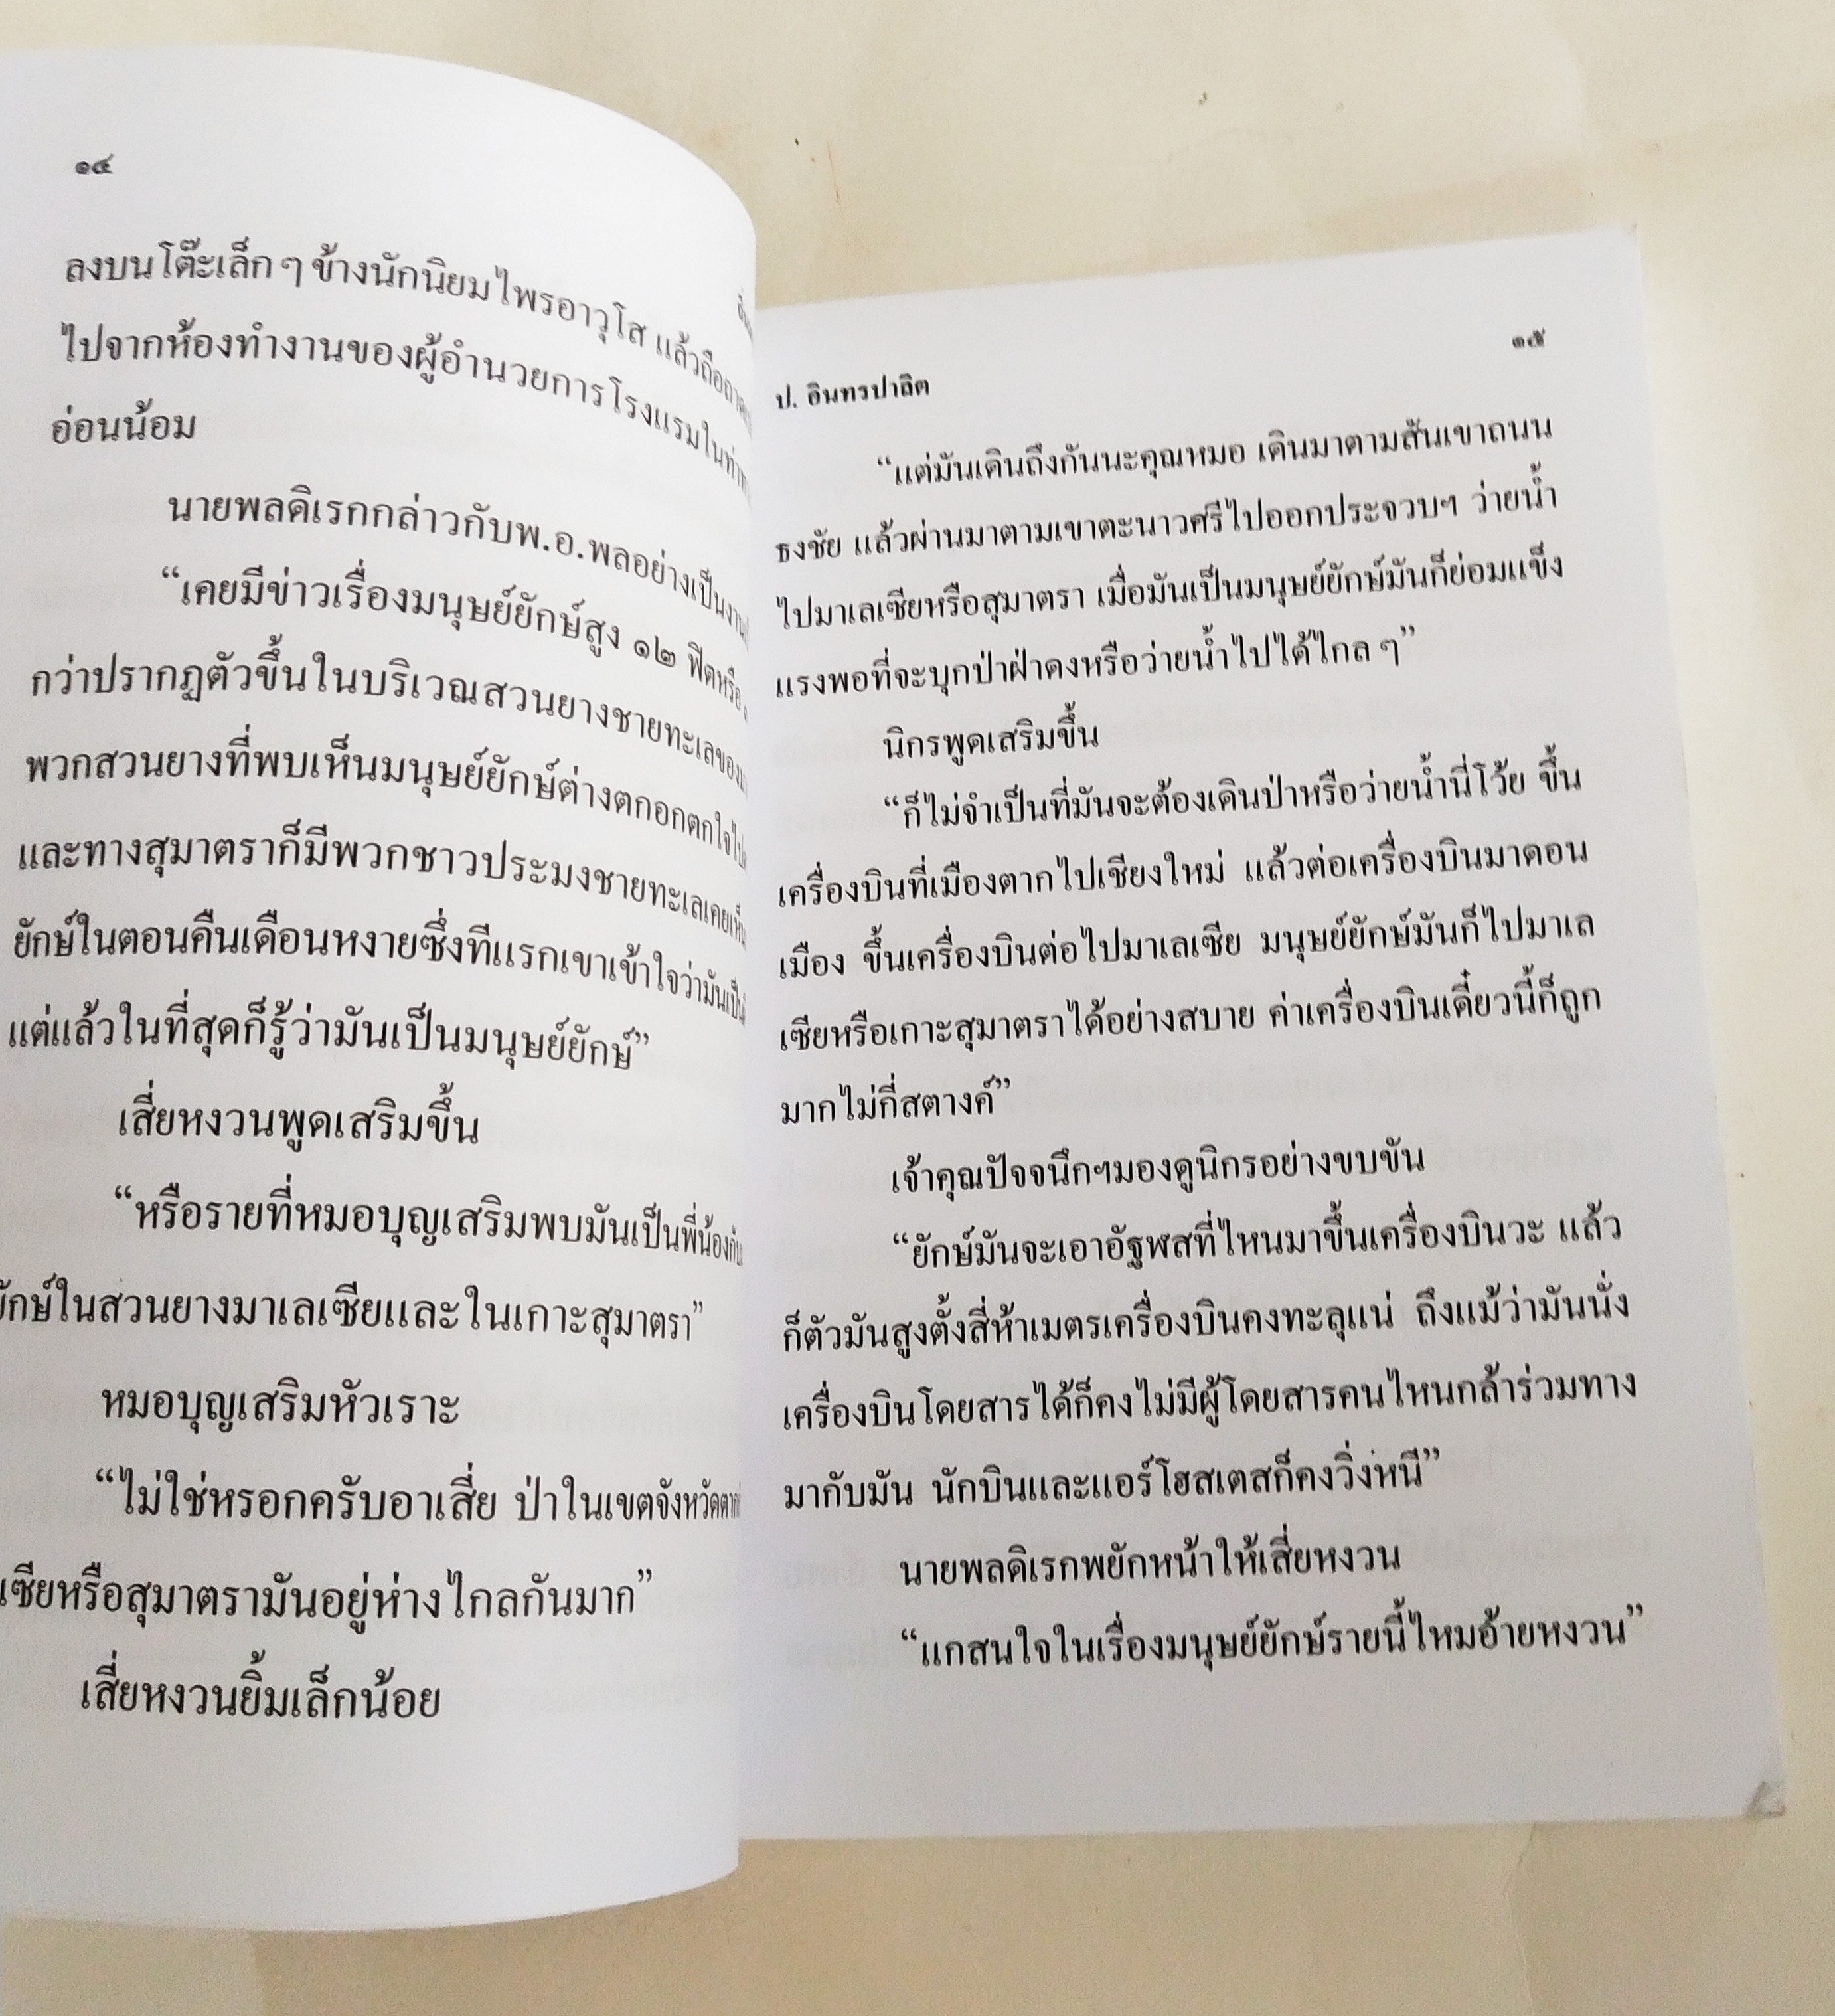 ๑๔
ลงบนโต๊ะเล็ก ๆ ข้างนักนิยมไพรอาวุโส แล้วถือถาด
ไปจากห้องทำงานของผู้อำนวยการโรงแรมในท่าทาง
อ่อนน้อม
นายพลดิเรกกล่าวกับพ.อ.พลอย่างเป็นงาน
“เคยมีข่าวเรื่องมนุษย์ยักษ์สูง ๑๒ ฟิตหรือ
กว่าปรากฏตัวขึ้นในบริเวณสวนยางชายทะเลของ
พวกสวนยางที่พบเห็นมนุษย์ยักษ์ต่างตกอกตกใจไป
และทางสุมาตราก็มีพวกชาวประมงชายทะเลเคยเห็น
ยักษ์ในตอนคืนเดือนหงายซึ่งทีแรกเขาเข้าใจว่ามันเป็น
แต่แล้วในที่สุดก็รู้ว่ามันเป็นมนุษย์ยักษ์”
เสี่ยหงวนพูดเสริมขึ้น
“หรือรายที่หมอบุญเสริมพบมันเป็นพี่น้องกับ
ยักษ์ในสวนยางมาเลเซียและในเกาะสุมาตรา”
หมอบุญเสริมหัวเราะ
“ไม่ใช่หรอกครับอาเสี่ย ป่าในเขตจังหวัดตาก
เซียหรือสุมาตรามันอยู่ห่างไกลกันมาก”
เสี่ยหงวนยิ้มเล็กน้อย
ป. อินทรปาลิต
๑๕
“แต่มันเดินถึงกันนะคุณหมอ เดินมาตามสันเขาถนน
ธงชัย แล้วผ่านมาตามเขาตะนาวศรีไปออกประจวบฯ ว่ายน้ำ
ไปมาเลเซียหรือสุมาตรา เมื่อมันเป็นมนุษย์ยักษ์มันก็ย่อมแข็ง
แรงพอที่จะบุกป่าฝ่าดงหรือว่ายน้ำไปได้ไกล ๆ”
นิกรพูดเสริมขึ้น
“ก็ไม่จำเป็นที่มันจะต้องเดินป่าหรือว่ายน้ำนี่โว้ย ขึ้น
เครื่องบินที่เมืองตากไปเชียงใหม่ แล้วต่อเครื่องบินมาดอน
เมือง ขึ้นเครื่องบินต่อไปมาเลเซีย มนุษย์ยักษ์มันก็ไปมาเล
เซียหรือเกาะสุมาตราได้อย่างสบาย ค่าเครื่องบินเดี๋ยวนี้ก็ถูก
มากไม่กี่สตางค์”
เจ้าคุณปัจจนึกฯมองดูนิกรอย่างขบขัน
“ยักษ์มันจะเอาอัฐฬสที่ไหนมาขึ้นเครื่องบินวะ แล้ว
ก็ตัวมันสูงตั้งสี่ห้าเมตรเครื่องบินคงทะลุแน่ ถึงแม้ว่ามันนั่ง
เครื่องบินโดยสารได้ก็คงไม่มีผู้โดยสารคนไหนกล้าร่วมทาง
มากับมัน นักบินและแอร์โฮสเตสก็คงวิ่งหนี”
นายพลดิเรกพยักหน้าให้เสี่ยหงวน
“แกสนใจในเรื่องมนุษย์ยักษ์รายนี้ไหมอ้ายหงวน”